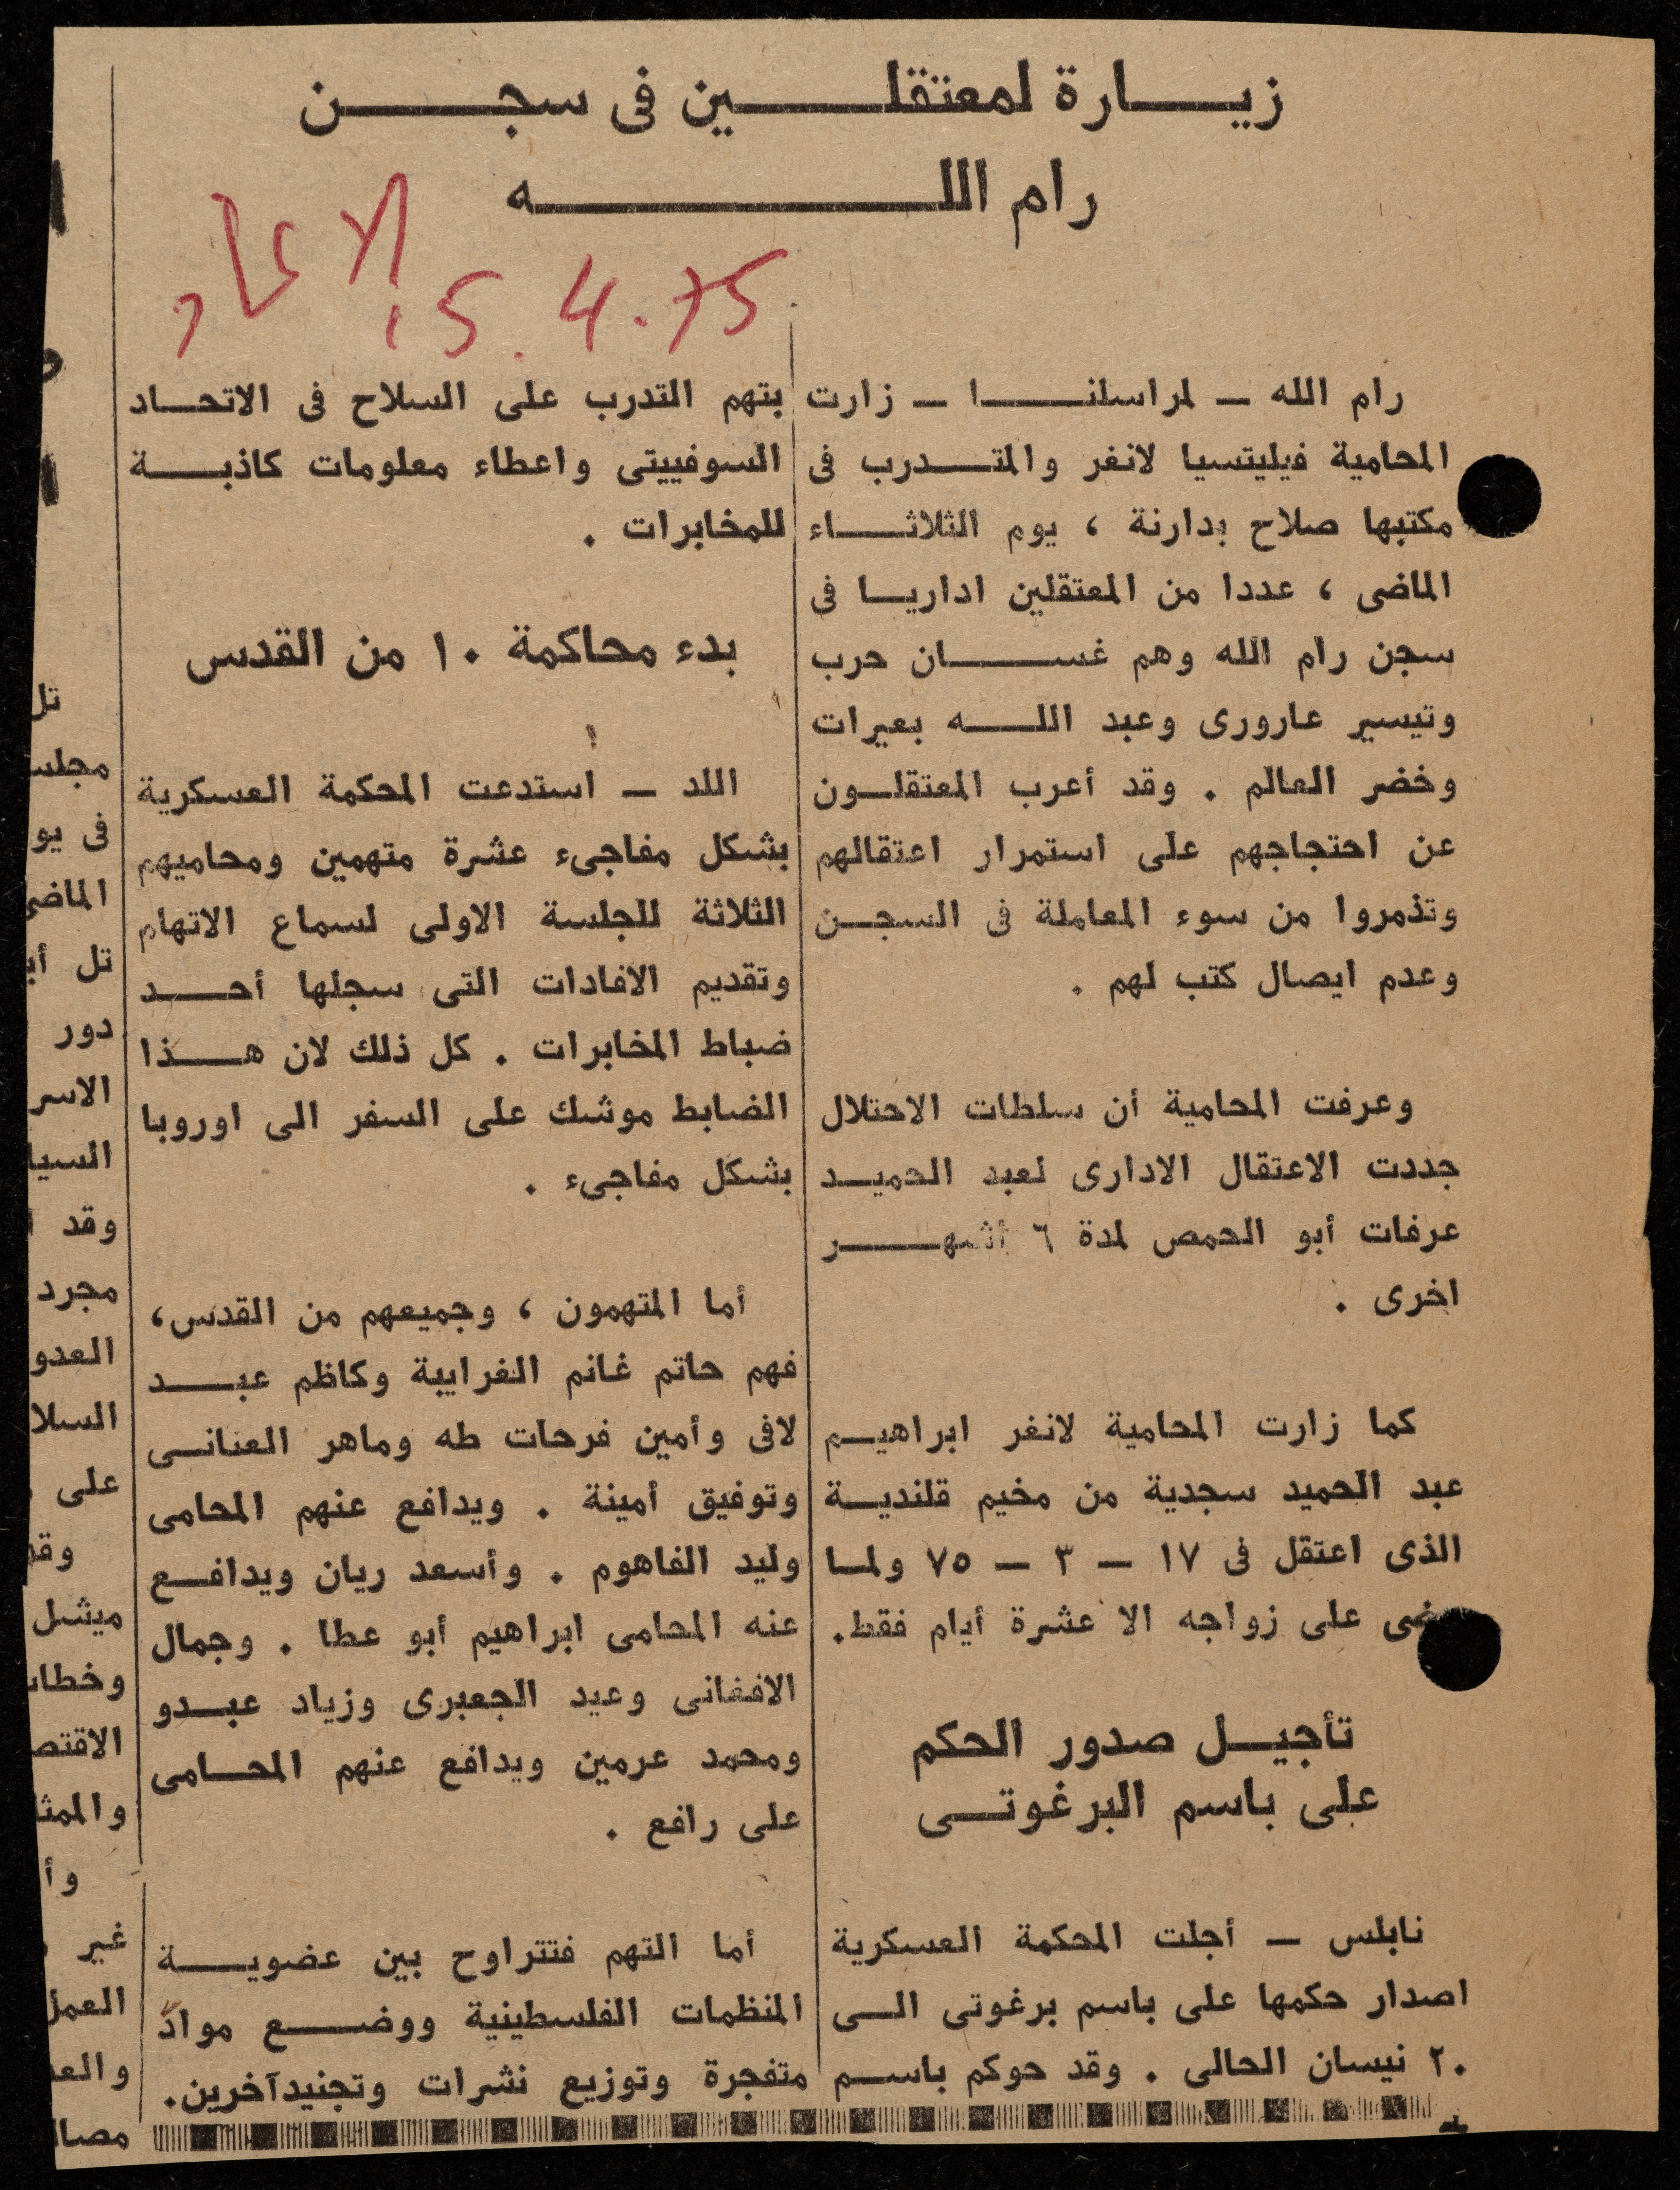 زيارة لمعتقلين فى سجن
رام الله
الاتحاد
15.4.75
رام الله — لمراسلنا — زارت
المحامية فيليتسيا لانغر والمتدرب فى
مكتبها صلاح بدارنة ، يوم الثلاثاء
الماضى ، عددا من المعتقلين اداريا فى
سجن رام الله وهم غسان حرب
وتيسير عارورى وعبد الله بعيرات
وخضر العالم . وقد أعرب المعتقلون
عن احتجاجهم على استمرار اعتقالهم
وتذمروا من سوء المعاملة فى السجن
وعدم ايصال كتب لهم .
وعرفت المحامية أن سلطات الاحتلال
جددت الاعتقال الادارى لعبد الحميد
عرفات أبو الحمص لمدة ٦ أشهر
اخرى .
كما زارت المحامية لانغر ابراهيم
عبد الحميد سجدية من مخيم قلندية
الذى اعتقل فى ١٧ — ٣ — ٧٥ ولما
على زواجه الا عشرة أيام فقط.
تأجيل صدور الحكم
على باسم البرغوتى
نابلس — أجلت المحكمة العسكرية
اصدار حكمها على باسم برغوتى الى
٢٠ نيسان الحالى . وقد حوكم باسم
بتهم التدرب على السلاح فى الاتحاد
السوفييتى واعطاء معلومات كاذبة
للمخابرات .
بدء محاكمة ١٠ من القدس
اللد — استدعت المحكمة العسكرية
بشكل مفاجىء عشرة متهمين ومحاميهم
الثلاثة للجلسة الاولى لسماع الاتهام
وتقديم الافادات التى سجلها أحد
ضباط المخابرات . كل ذلك لان هذا
الضابط موشك على السفر الى اوروبا
بشكل مفاجىء .
أما المتهمون ، وجميعهم من القدس،
فهم حاتم غانم الغرايبة وكاظم عبد
لافى وأمين فرحات طه وماهر العنانى
وتوفيق أمينة . ويدافع عنهم المحامى
وليد الفاهوم . وأسعد ريان ويدافع
عنه المحامى ابراهيم أبو عطا . وجمال
الافغانى وعيد الجعبرى وزياد عبدو
ومحمد عرمين ويدافع عنهم المحامى
على رافع .
أما التهم فتتراوح بين عضوية
المنظمات الفلسطينية ووضع مواد
متفجرة وتوزيع نشرات وتجنيدآخرين.
تل
مجلس
فى يو
الماضى
تل
دور
الاسر
السيا
وقد
مجرد
العدو
السلا
على
وقد
ميشل
وخطا
الاقتص
والمثا
وأ
غير
العمل
والعد
مصا